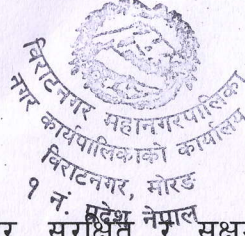 विराटनगर महानगरपालिका
नगर कार्यपालिकाको कार्यालय
विराटनगर, मोरङ
१ नं. प्रदेश नेपाल
सुरक्षित र